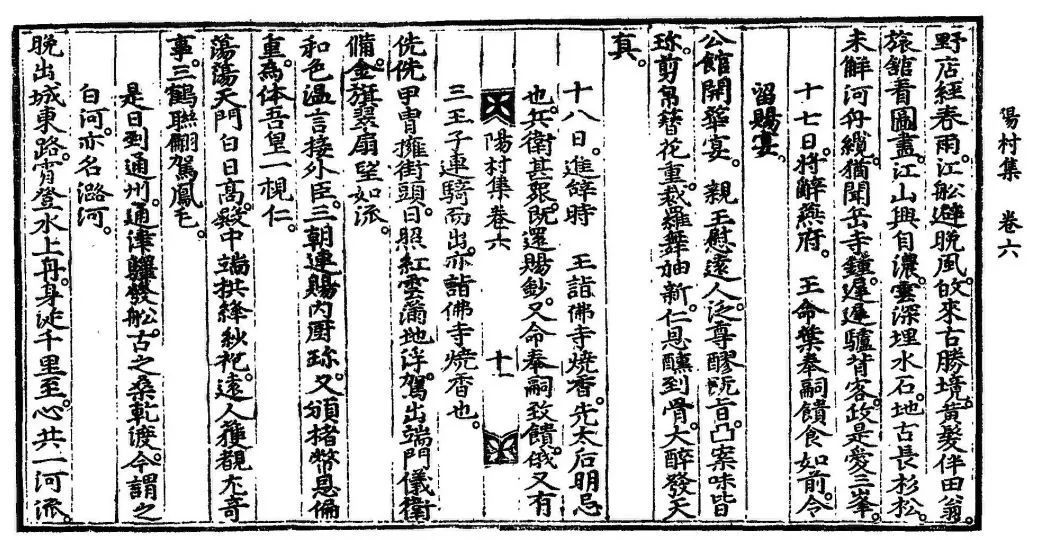 陽村集　卷六
野店經春雨。江船避晚風。故來古勝境。黃髮伴田翁。
旅舘看圖畫。江山興自濃。雲深埋水石。地古長杉松。
未解河舟纜。猶聞岳寺鍾。遲遲驢背客。政是愛三峯。
十七日。將辭燕府。　王命葉奉祠饋食如前。令
留賜宴。
公館開華宴。　親王慰遠人。泛尊醪旣旨。凸案味皆
珎。剪帛簪花重。裁羅舞袖新。仁恩醺到骨。大醉發天
真。
十八日。進辭時　王詣佛寺燒香。先太后明忌
也。兵衛甚嚴。旣還賜鈔。又命奉祠致饋。俄又有
陽村集卷六　十一
三王子連騎而出。亦詣佛寺燒香也。
侁侁甲冑擁街頭。日照紅雲滿地浮。駕出端門儀衛
備。金旗翠扇望如流。
和色溫言接外臣。三朝連賜內厨珎。又頒楮幣恩偏
重。為体吾皇一視仁。
蕩蕩天門白日高。殿中端拱絳紗袍。遠人獲覩尤奇
事。三鶴聯翩駕鳳毛。
是日到通州。通津驛發船。古之桑乾渡。今謂之
白河。亦名潞河。
晚出城東路。宵登水上舟。身從千里至。心共一河流。